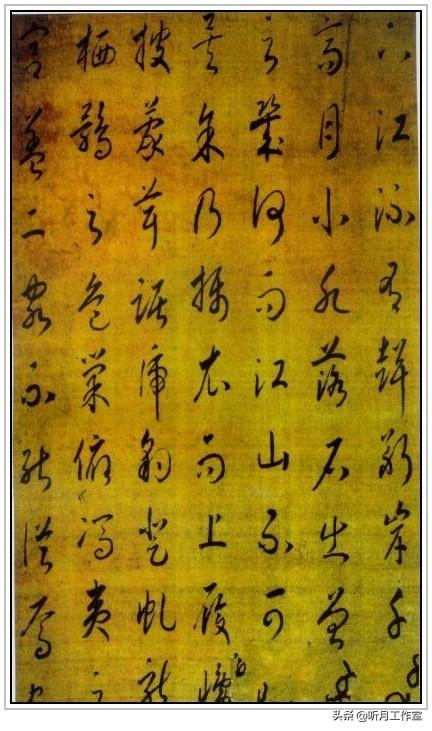 下江流有聲斷岸千
高月小水落石出曾
之幾何而江山不可
矣余乃攝衣而上履巉
披蒙茸踞虎豹登虬龍
栖鶻之危巢俯馮夷之
宮蓋二客不能從焉
头条 @听月工作室